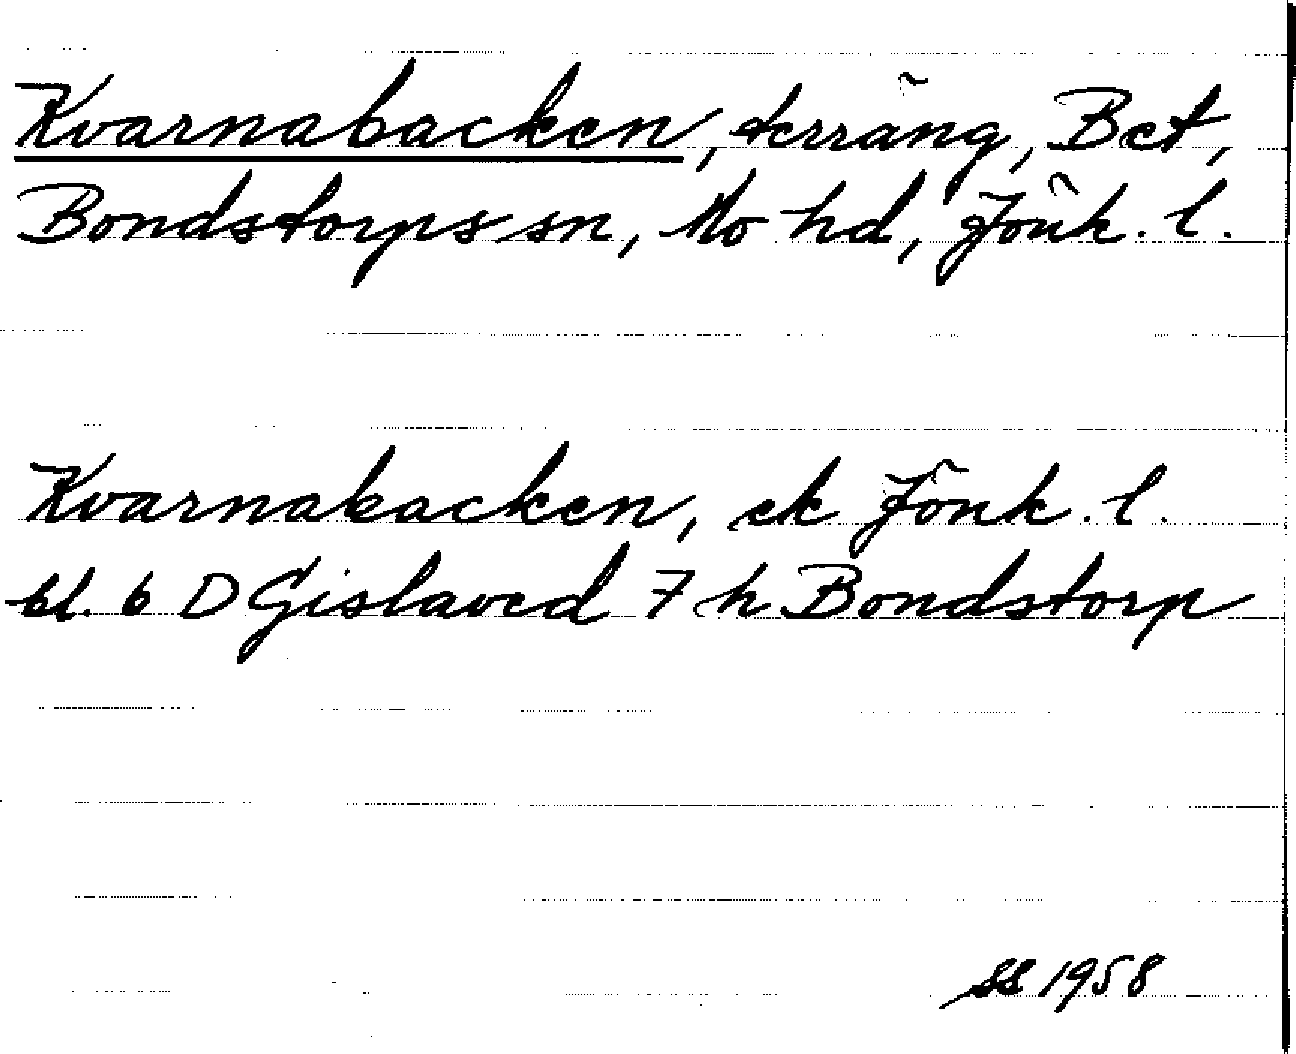 Kvarnabacken, terräng, Bet,
Bondstorps sn, Mo hd, Jönk. l.
Kvarnabacken, ek Jönk. l.
bl. 6 D Gislaved 7 h Bondstorp
SS 1958